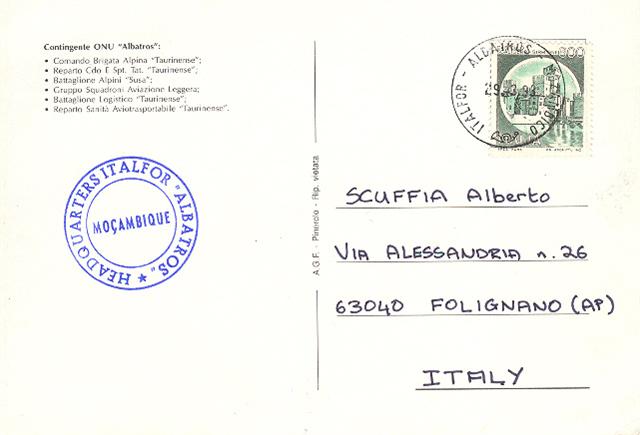 Contingente ONU "Albatros":
• Comando Brigata Alpina "Taurinense";
• Reparto Cdo E Spt. Tat. "Taurinense";
• Battaglione Alpini "Susa";
• Gruppo Squadroni Aviazione Leggera;
• Battaglione Logistico "Taurinense";
• Reparto Sanità Aviotrasportabile "Taurinense".
HEADQUARTERS ITALFOR "ALBATROS" ★
MOÇAMBIQUE
A.G.F. - Pinerolo - Rip. vietata
ITALFOR - ALBATROS -
29.3.94
600
SCUFFIA Alberto
VIA ALESSANDRIA n. 26
63040 FOLIGNANO (AP)
ITALY